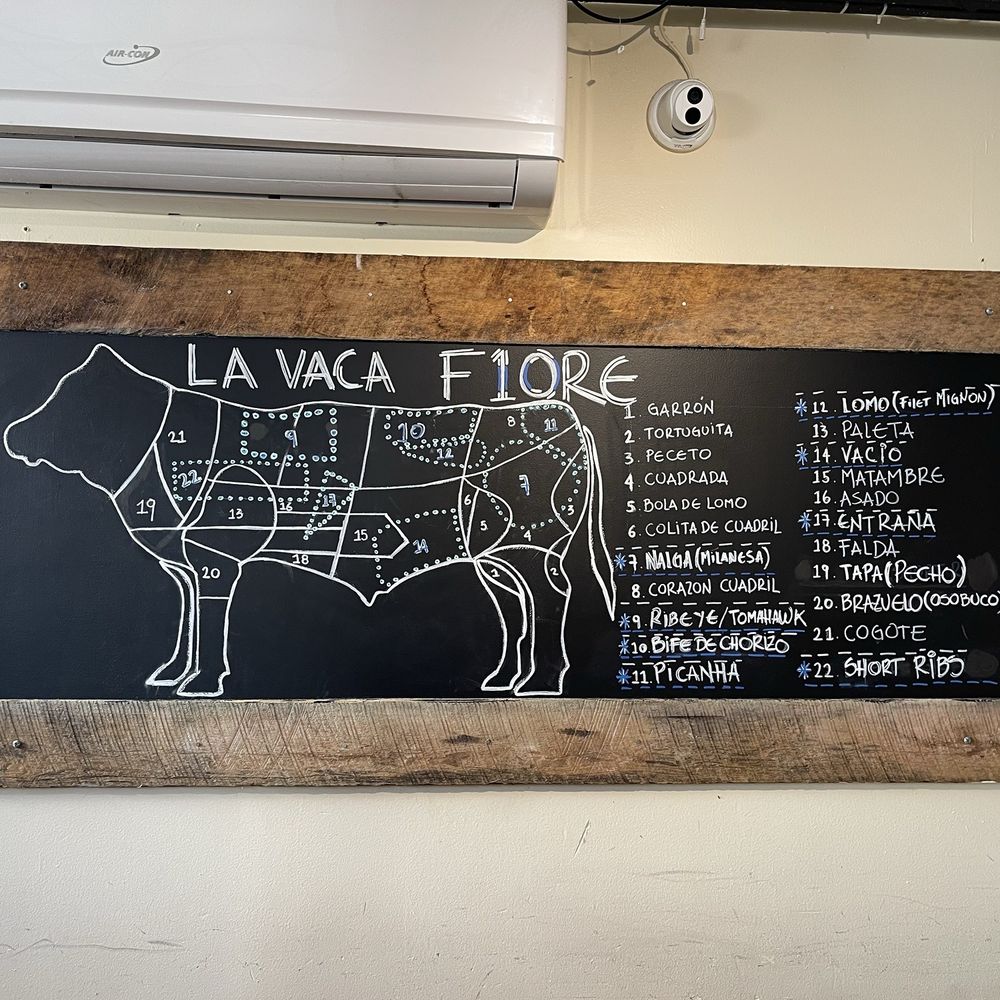 AIR-CON
LA VACA F1ORE
1. GARRÓN
2. TORTUGUITA
3. PECETO
4. CUADRADA
5. BOLA DE LOMO
6. COLITA DE CUADRIL
*7. NALGA (MILANESA)
8. CORAZON CUADRIL
*9. RIBEYE/TOMAHAWK
*10. BIFE DE CHORIZO
*11. PICANHA
*12. LOMO (FILET MIGNÓN)
13. PALETA
*14. VACÍO
15. MATAMBRE
16. ASADO
*17. ENTRAÑA
18. FALDA
19. TAPA (PECHO)
20. BRAZUELO (OSOBUCO)
21. COGOTE
*22. SHORT RIBS
21
9
10
8
11
12
22
7
19
13
16
17
6
3
15
5
4
14
18
20
1
2